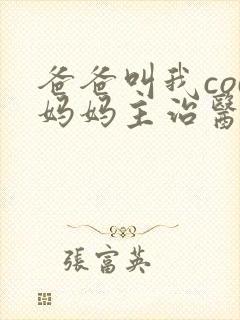 爸爸叫我co
妈妈主治醫
張富英